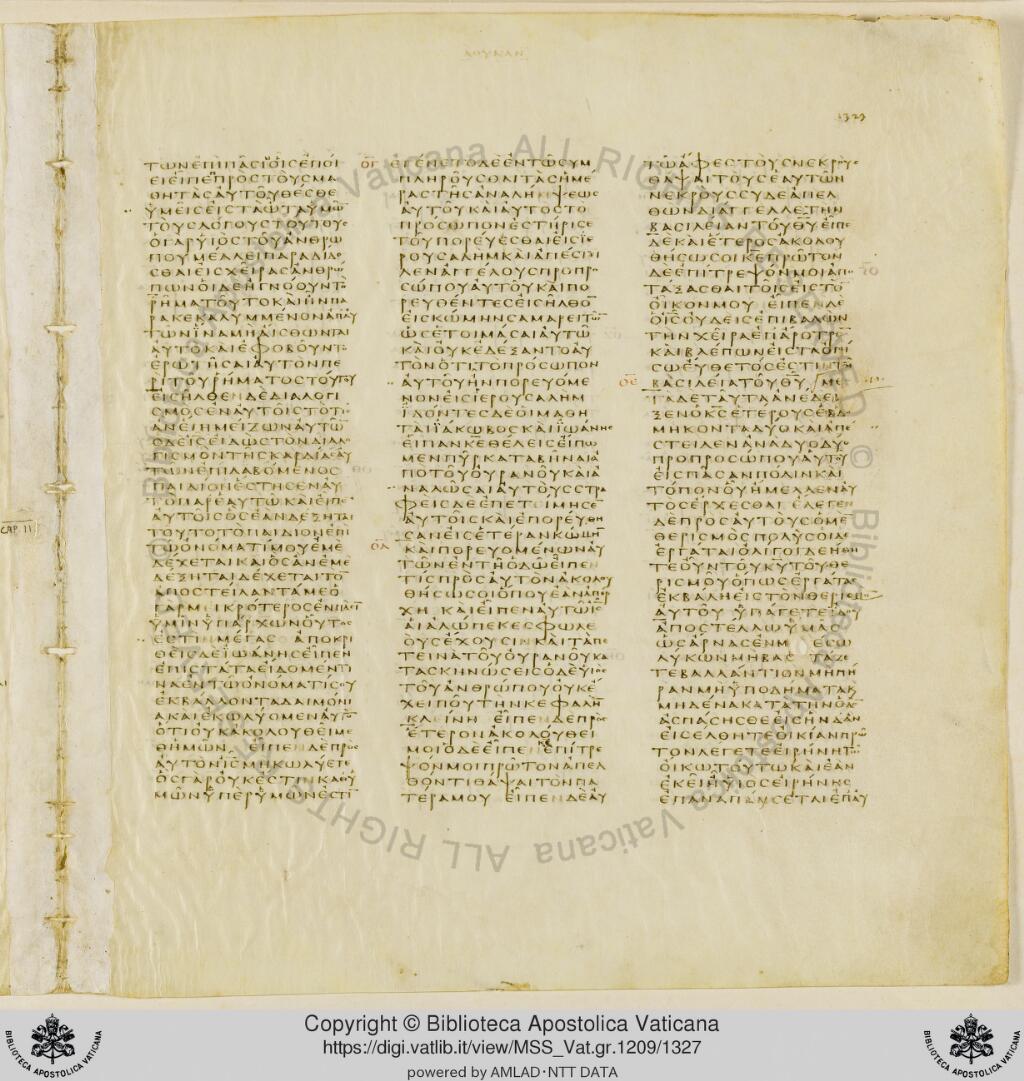 ΛΟΥΚΑΝ
1327
ΤΩΝΕΠΙΠΑϹΙΟΙϹΕΠΟΙ
ΕΙΕΙΠΕΠΡΟϹΤΟΥϹΜΑ
ΘΗΤΑϹΑΥΤΟΥΘΕϹΘΕ
ΥΜΕΙϹΕΙϹΤΑΩΤΑΥΜΩ̅
ΤΟΥϹΛΟΓΟΥϹΤΟΥΤΟΥϹ
ΟΓΑΡΥΙΟϹΤΟΥΑΝΘΡΩ
ΠΟΥΜΕΛΛΕΙΠΑΡΑΔΙΔΟ
ϹΘΑΙΕΙϹΧΕΙΡΑϹΑΝΘΡΩ
ΠΩΝΟΙΔΕΗΓΝΟΟΥΝΤΟ
ΡΗΜΑΤΟΥΤΟΚΑΙΗΝΠΑ
ΡΑΚΕΚΑΛΥΜΜΕΝΟΝΑΠΑΥ
ΤΩΝΙΝΑΜΗΑΙϹΘΩΝΤΑΙ
ΑΥΤΟΚΑΙΕΦΟΒΟΥΝΤΟ
ΕΡΩΤΗϹΑΙΑΥΤΟΝΠΕ
ΡΙΤΟΥΡΗΜΑΤΟϹΤΟΥΤΟΥ
ΕΙϹΗΛΘΕΝΔΕΔΙΑΛΟΓΙ
ϹΜΟϹΕΝΑΥΤΟΙϹΤΟΤΙϹ
ΑΝΕΙΗΜΕΙΖΩΝΑΥΤΩ̅
ΟΔΕΙϹΕΙΔΩϹΤΟΝΔΙΑΛΟ
ΓΙϹΜΟΝΤΗϹΚΑΡΔΙΑϹΑΥ
ΤΩΝΕΠΙΛΑΒΟΜΕΝΟϹ
ΠΑΙΔΙΟΝΕϹΤΗϹΕΝΑΥ
ΤΟΠΑΡΕΑΥΤΩΚΑΙΕΙΠΕ̅
ΑΥΤΟΙϹΟϹΕΑΝΔΕΞΗΤΑΙ
ΤΟΥΤΟΤΟΠΑΙΔΙΟΝΕΠΙ
ΤΩΟΝΟΜΑΤΙΜΟΥΕΜΕ
ΔΕΧΕΤΑΙΚΑΙΟϹΑΝΕΜΕ
ΔΕΞΗΤΑΙΔΕΧΕΤΑΙΤΟ̅
ΑΠΟϹΤΕΙΛΑΝΤΑΜΕΟ
ΓΑΡΜΙΚΡΟΤΕΡΟϹΕΝΠΑϹΙ
ΥΜΙΝΥΠΑΡΧΩΝΟΥΤΟϹ
ΕϹΤΙΝΜΕΓΑϹ ΑΠΟΚΡΙ
ΘΕΙϹΔΕΙΩΑΝΗϹΕΙΠΕΝ
ΕΠΙϹΤΑΤΑΕΙΔΟΜΕΝΤΙ
ΝΑΕΝΤΩΟΝΟΜΑΤΙϹΟΥ
ΕΚΒΑΛΛΟΝΤΑΔΑΙΜΟΝΙ
ΑΚΑΙΕΚΩΛΥΟΜΕΝΑΥΤΟ̅
ΟΤΙΟΥΚΑΚΟΛΟΥΘΕΙΜΕ
ΘΗΜΩΝ ΕΙΠΕΝΔΕΠΡΟϹ
ΑΥΤΟΝΙ̅Ϲ̅ΜΗΚΩΛΥΕΤΕ
ΟϹΓΑΡΟΥΚΕϹΤΙΝΚΑΘΥ
ΜΩΝΥΠΕΡΥΜΩΝΕϹΤΙ̅
ΟΓ
ΕΓΕΝΕΤΟΔΕΕΝΤΩϹΥΜ
ΠΛΗΡΟΥϹΘΑΙΤΑϹΗΜΕ
ΡΑϹΤΗϹΑΝΑΛΗΜΨΕΩϹ
ΑΥΤΟΥΚΑΙΑΥΤΟϹΤΟ
ΠΡΟϹΩΠΟΝΕϹΤΗΡΙϹΕ
ΤΟΥΠΟΡΕΥΕϹΘΑΙΕΙϹΙΕ
ΡΟΥϹΑΛΗΜΚΑΙΑΠΕϹΤΙ
ΛΕΝΑΓΓΕΛΟΥϹΠΡΟΠΡΟ
ϹΩΠΟΥΑΥΤΟΥΚΑΙΠΟ
ΡΕΥΘΕΝΤΕϹΕΙϹΗΛΘΟ̅
ΕΙϹΚΩΜΗΝϹΑΜΑΡΕΙΤΩ̅
ΩϹΕΤΟΙΜΑϹΑΙΑΥΤΩ
ΚΑΙΟΥΚΕΔΕΞΑΝΤΟΑΥ
ΤΟΝΟΤΙΤΟΠΡΟϹΩΠΟΝ
ΑΥΤΟΥΗΝΠΟΡΕΥΟΜΕ
ΝΟΝΕΙϹΙΕΡΟΥϹΑΛΗΜ
ΙΔΟΝΤΕϹΔΕΟΙΜΑΘΗ
ΤΑΙΙΑΚΩΒΟϹΚΑΙΙΩΑΝΗϹ
ΕΙΠΑΝΚΕΘΕΛΕΙϹΕΙΠΩ
ΜΕΝΠΥΡΚΑΤΑΒΗΝΑΙΑ
ΠΟΤΟΥΟΥΡΑΝΟΥΚΑΙΑ
ΝΑΛΩϹΑΙΑΥΤΟΥϹϹΤΡΑ
ΦΕΙϹΔΕΕΠΕΤΕΙΜΗϹΕ̅
ΑΥΤΟΙϹΚΑΙΕΠΟΡΕΥΘΗ
ϹΑΝΕΙϹΕΤΕΡΑΝΚΩΜΗ̅
ΟΔ
ΚΑΙΠΟΡΕΥΟΜΕΝΩΝΑΥ
ΤΩΝΕΝΤΗΟΔΩΕΙΠΕ̅
ΤΙϹΠΡΟϹΑΥΤΟΝΑΚΟΛΟΥ
ΘΗϹΩϹΟΙΟΠΟΥΕΑΝΑΠΕΡ
ΧΗ ΚΑΙΕΙΠΕΝΑΥΤΩΙ̅Ϲ̅
ΑΙΑΛΩΠΕΚΕϹΦΩΛΕ
ΟΥϹΕΧΟΥϹΙΝΚΑΙΤΑΠΕ
ΤΕΙΝΑΤΟΥΟΥΡΑΝΟΥΚΑ
ΤΑϹΚΗΝΩϹΕΙϹΟΔΕΥΙΟϹ
ΤΟΥΑΝΘΡΩΠΟΥΟΥΚΕ
ΧΕΙΠΟΥΤΗΝΚΕΦΑΛΗ̅
ΚΛΕΙΝΗ ΕΙΠΕΝΔΕΠΡΟϹ
ΕΤΕΡΟΝΑΚΟΛΟΥΘΕΙ
ΜΟΙΟΔΕΕΙΠΕΝΕΠΙΤΡΕ
ΨΟΝΜΟΙΠΡΩΤΟΝΑΠΕΛ
ΘΟΝΤΙΘΑΨΑΙΤΟΝΠΑ
ΤΕΡΑΜΟΥ ΕΙΠΕΝΔΕΑΥ
ΤΩΑΦΕϹΤΟΥϹΝΕΚΡΟΥϹ
ΘΑΨΑΙΤΟΥϹΕΑΥΤΩΝ
ΝΕΚΡΟΥϹϹΥΔΕΑΠΕΛ
ΘΩΝΔΙΑΓΓΕΛΛΕΤΗΝ
ΒΑϹΙΛΕΙΑΝΤΟΥΘ̅Υ̅ΕΙΠΕ
ΔΕΚΑΙΕΤΕΡΟϹΑΚΟΛΟΥ
ΘΗϹΩϹΟΙΚΕΠΡΩΤΟΝ
ΔΕΕΠΙΤΡΕΨΟΝΜΟΙΑΠΟ
ΤΑΞΑϹΘΑΙΤΟΙϹΕΙϹΤΟ̅
ΟΙΚΟΝΜΟΥ ΕΙΠΕΝΔΕ
ΟΙ̅Ϲ̅ΟΥΔΕΙϹΕΠΙΒΑΛΩΝ
ΤΗΝΧΕΙΡΑΕΠΑΡΟΤΡΟ̅
ΚΑΙΒΛΕΠΩΝΕΙϹΤΑΟΠΙ
ϹΩΕΥΘΕΤΟϹΕϹΤΙΝΤΗ
ΟΕ
ΒΑϹΙΛΕΙΑΤΟΥΘ̅Υ̅ ΜΕ
ΤΑΔΕΤΑΥΤΑΑΝΕΔΕΙ
ΞΕΝΟΚ̅Ϲ̅ΕΤΕΡΟΥϹΕΒΔΟ
ΜΗΚΟΝΤΑΔΥΟΚΑΙΑΠΕ
ϹΤΕΙΛΕΝΑΝΑΔΥΟΔΥΟ
ΠΡΟΠΡΟϹΩΠΟΥΑΥΤΟΥ
ΕΙϹΠΑϹΑΝΠΟΛΙΝΚΑΙ
ΤΟΠΟΝΟΥΗΜΕΛΛΕΝΑΥ
ΤΟϹΕΡΧΕϹΘΑΙ ΕΛΕΓΕΝ
ΔΕΠΡΟϹΑΥΤΟΥϹΟΜΕ̅
ΘΕΡΙϹΜΟϹΠΟΛΥϹΟΙΔΕ
ΕΡΓΑΤΑΙΟΛΙΓΟΙΔΕΗΘΗ
ΤΕΟΥΝΤΟΥΚ̅Υ̅ΤΟΥΘΕ
ΡΙϹΜΟΥΟΠΩϹΕΡΓΑΤΑϹ
ΕΚΒΑΛΗΕΙϹΤΟΝΘΕΡΙϹΜΟ̅
ΑΥΤΟΥ ΥΠΑΓΕΤΕΙΔΟΥ
ΑΠΟϹΤΕΛΛΩΥΜΑϹ
ΩϹΑΡΝΑϹΕΝΜΕϹΩ
ΛΥΚΩΝΜΗΒΑϹΤΑΖΕ
ΤΕΒΑΛΛΑΝΤΙΟΝΜΗΠΗ
ΡΑΝΜΗΥΠΟΔΗΜΑΤΑΚ
ΜΗΔΕΝΑΚΑΤΑΤΗΝΟΔΟ̅
ΑϹΠΑϹΗϹΘΕΕΙϹΗΝΔΑΝ
ΕΙϹΕΛΘΗΤΕΟΙΚΙΑΝΠΡΩ
ΤΟΝΛΕΓΕΤΕΕΙΡΗΝΗΤΩ
ΟΙΚΩΤΟΥΤΩΚΑΙΕΑΝ
ΕΚΕΙΗΥΙΟϹΕΙΡΗΝΗϹ
ΕΠΑΝΑΠΑΗϹΕΤΑΙΕΠΑΥ
CAP. 11
Copyright © Biblioteca Apostolica Vaticana
https://digi.vatlib.it/view/MSS_Vat.gr.1209/1327
powered by AMLAD·NTT DATA